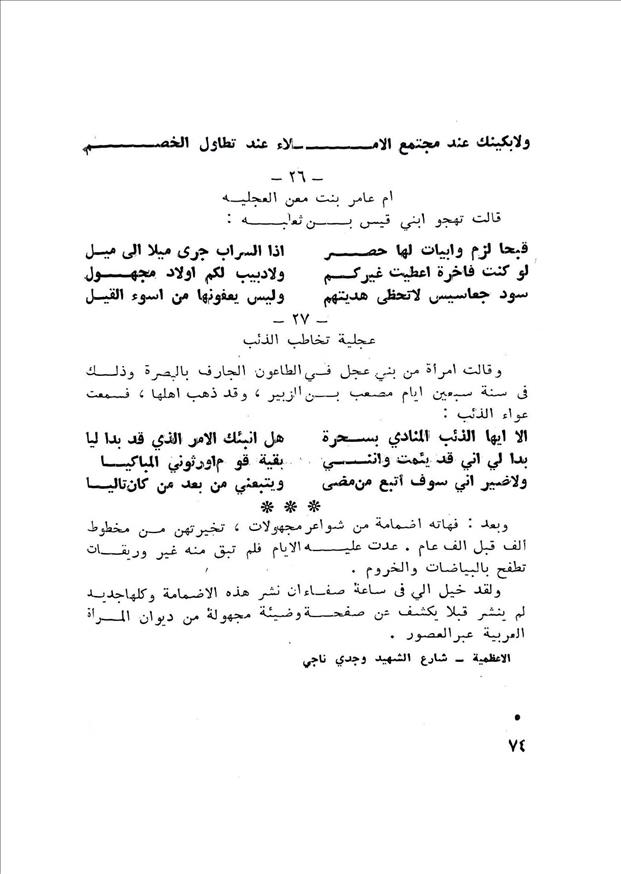 ولابكينك عند مجتمع الامـــــــلاء عند تطاول الخصـــــــم
– ٢٦ –
ام عامر بنت معن العجليـه
قالت تهجو ابني قيس بـــن ثعلبـه :
قبحا لزم وابيات لها حصـــر اذا السراب جرى ميلا الى ميـل
لو كنت فاخرة اعطيت غيركـم ولادبيب لكم اولاد مجهـــول
سود جعاسيس لاتحظى هديتهم وليس يعفونها من اسوء القيـل
– ٢٧ –
عجلية تخاطب الذئب
وقالت امرأة من بني عجل فـي الطاعون الجارف بالبصرة وذلـك
فى سنة سبعين ايام مصعب بـــن الزبير ، وقد ذهب اهلها ، فسمعت
عواء الذئب :
الا ايها الذئب المنادي بسـحرة هل انبئك الامر الذي قد بدا ليا
بدا لي اني قد يئمت وانتـــي بقية قو م اورثوني المباكيـا
ولاضير اني سوف أتبع من مضى ويتبعني من بعد من كان تاليـا
* * *
وبعد : فهاته اضمامة من شواعر مجهولات ، تخيرتهن مـن مخطوط
ألف قبل الف عام . عدت عليـــه الايام فلم تبق منه غير وريقـات
تطفح بالبياضات والخروم .
ولقد خيل الي فى ساعة صفاء ان نشر هذه الاضمامة وكلها جديـد
لم ينشر قبلا يكشف عن صفحـــة وضيئة مجهولة من ديوان المـرأة
العربية عبر العصور .
الاعظمية – شارع الشهيد وجدي ناجي
٧٤